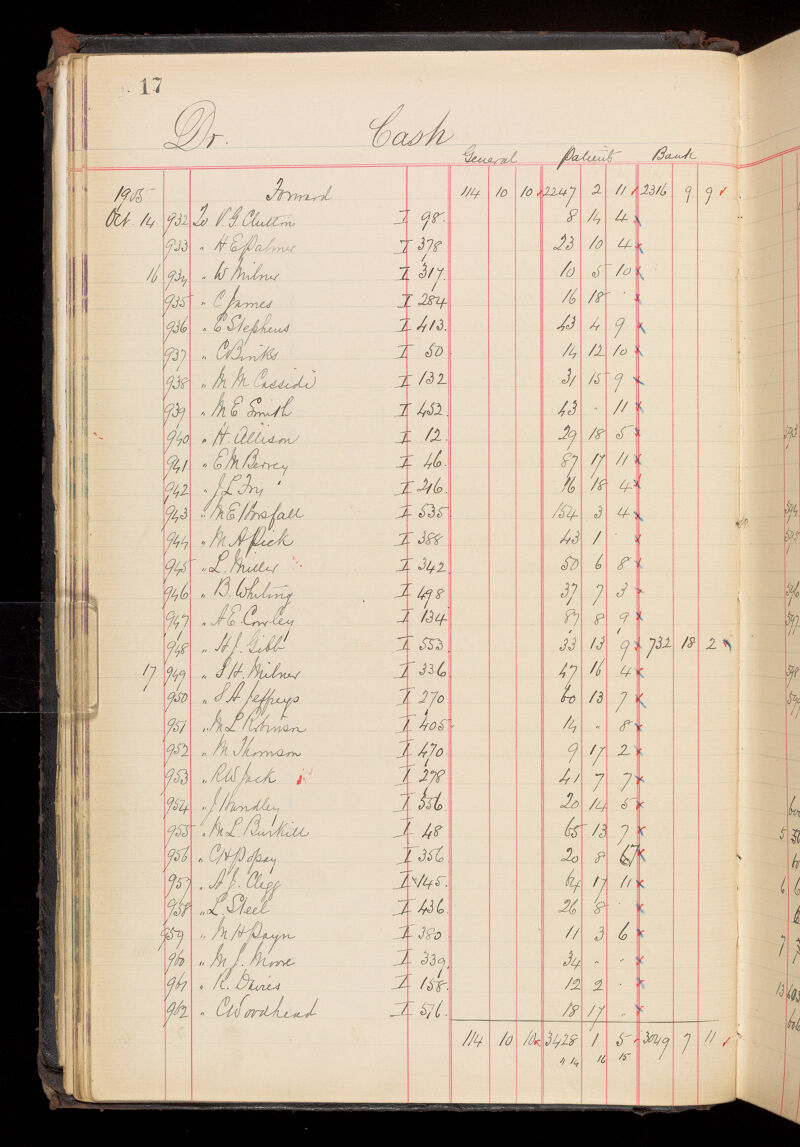 17
Dr. Cash
General Patients Bank
1905 Forward 114 10 10 2247 2 11 2316 9 9
Oct. 14 932 To V. G. Clutton I 98. 8 14 4
933 " H E Palmer I 378 23 10 4
16 934 " W Milner I 317. 10 5 10
935 " C James I 284 16 18 ·
936 " E Stephens I 413. 43 4 9
937 " C Binks I 50 14 12 10
938 " M M Cassidi I 132 31 15 9
939 " M E Smith I 452 43 · 11
940 " H. Allison I 12. 29 18 5
941 " E M Berrey I 46. 87 17 11
942 " J L Fry I 216. 16 18 4
943 " M E Horsfall I 535 154 3 4
944 " M A Pick I 388 43 1 ·
945 " L. Miller I 342 50 6 8
946 " B. Whiting I 498 37 7 3
947 " A E. Cowley I 134 87 8 9
948 " H J. Gibb I 553 33 13 9 732 18 2
17 949 " S H. Milner I 336 47 16 4
950 " S A Jeffreys I 270 60 13 7
951 " M L Robinson I 405 14 " 8
952 " M Thomson I 470 9 17 2
953 " R W Jack I 278 41 7 7
954 " J Handley I 356 20 14 5
955 " M L. Burkill I 48 65 13 7
956 " C H Popay I 356 20 8 7
957 " A J. Clegg I 145. 64 17 11
958 " L. Steel I 436 26 8 ·
959 " M H Payn I 380 11 3 6
960 " M J. Moore I 339 34 " "
961 " R. Davies I 158. 12 2 ·
962 " C Woodhead I 576. 18 17 "
114 10 10 3428 1 5 3049 7 11
" 14 16 15